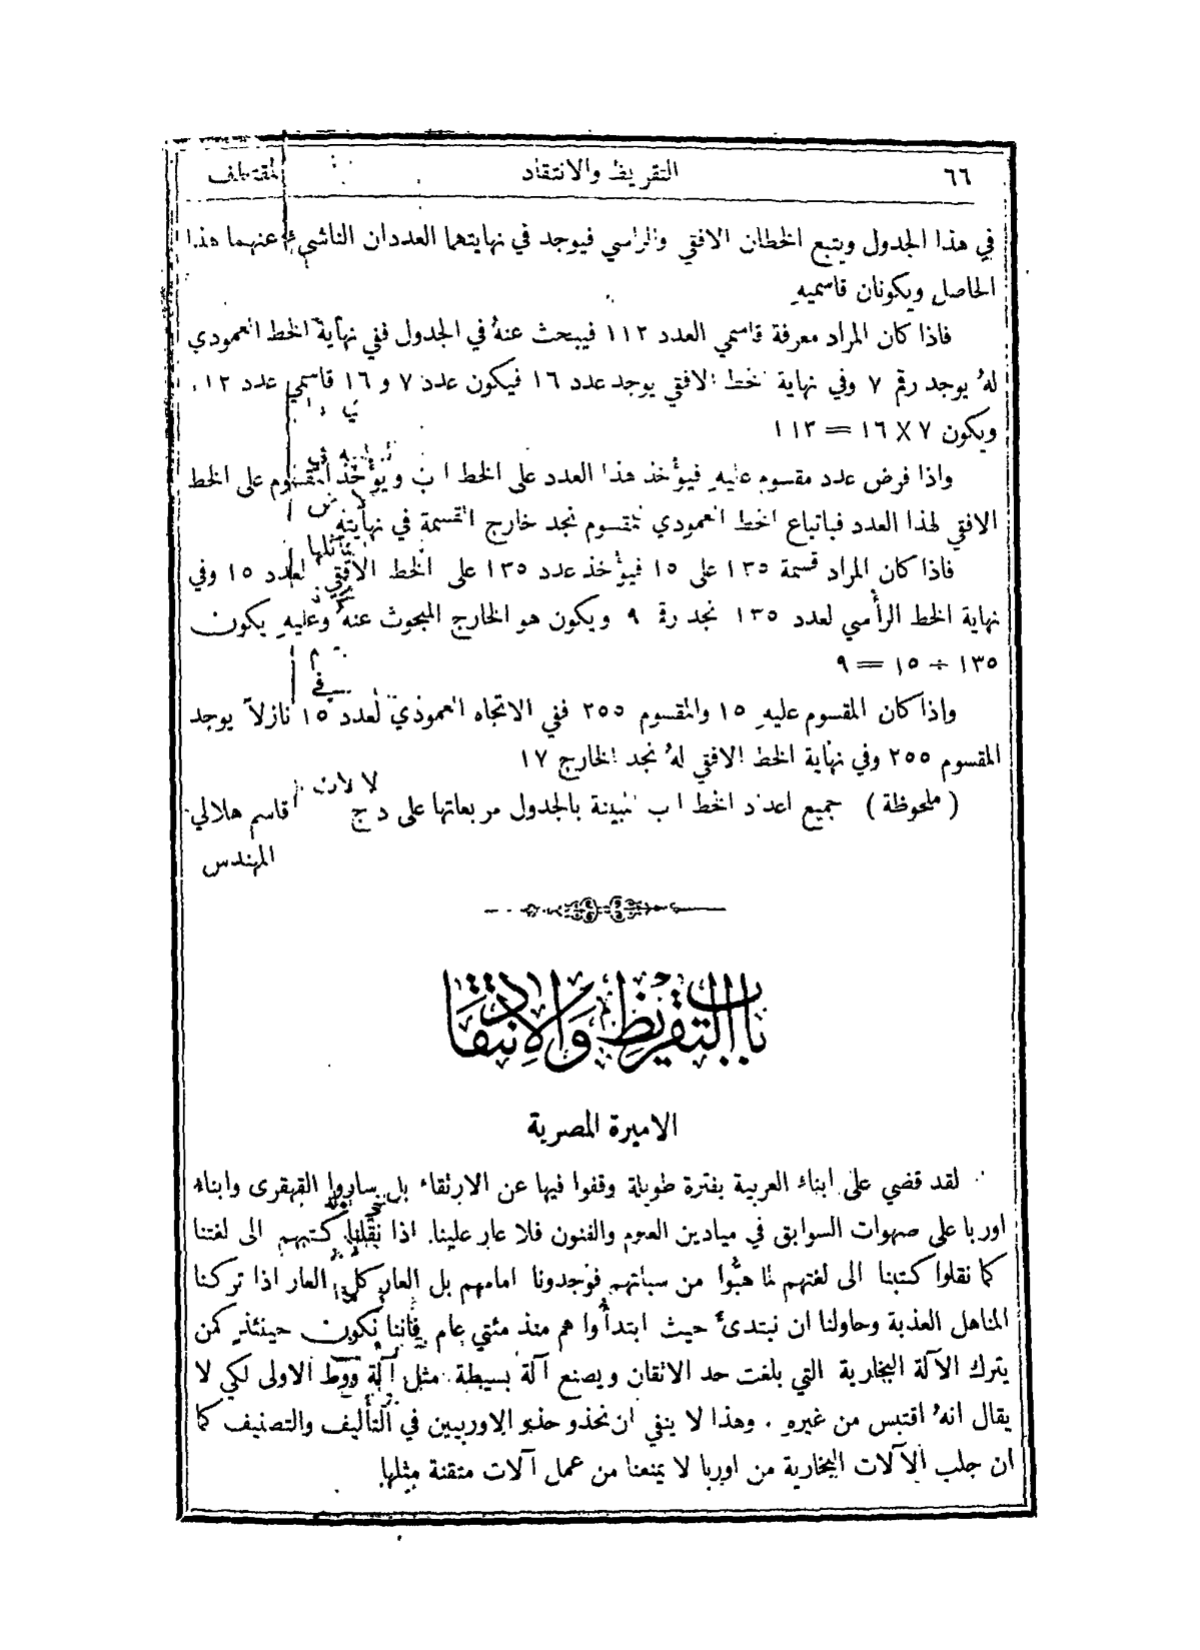 ٦٦ التقريظ والانتقاد المقتطف
في هذا الجدول ويتبع الخطان الافقي والراسي فيوجد في نهايتهما العددان الناشيء عنهما هذا
الحاصل ويكونان قاسميهِ
فاذا كان المراد معرفة قاسمي العدد ١١٢ فيبحث عنهُ في الجدول ففي نهاية الخط العمودي
لهُ يوجد رقم ٧ وفي نهاية الخط الافقي يوجد عدد ١٦ فيكون عدد ٧ و ١٦ قاسمي عدد ١٢
ويكون ٧ × ١٦ = ١١٢
واذا فرض عدد مقسوم عليهِ فيؤخذ هذا العدد على الخط ا ب ويؤخذ المقسوم على الخط
الافقي لهذا العدد فباتباع الخط العمودي للمقسوم نجد خارج القسمة في نهايتهِ
فاذا كان المراد قسمة ١٣٥ على ١٥ فيؤخذ عدد ١٣٥ على الخط الافقي لعدد ١٥ وفي
نهاية الخط الرأسي لعدد ١٣٥ نجد رقم ٩ ويكون هو الخارج المبحوث عنهُ وعليهِ يكون
١٣٥ ÷ ١٥ = ٩
واذا كان المقسوم عليهِ ١٥ والمقسوم ٢٥٥ ففي الاتجاه العمودي لعدد ١٥ نازلاً يوجد
المقسوم ٢٥٥ وفي نهاية الخط الافقي لهُ نجد الخارج ١٧
( ملحوظة ) جميع اعداد الخط ا ب المبينة بالجدول مربعاتها على د ج قاسم هلالي
المهندس
باب التقريظ والانتقاد
الاميرة المصرية
لقد قضي على ابناء العربية بفترة طويلة وقفوا فيها عن الارتقاء بل ساروا القهقرى وابناء
اوربا على صهوات السوابق في ميادين العلوم والفنون فلا عار علينا اذا نقلنا كتبهم الى لغتنا
كما نقلوا كتبنا الى لغتهم لما هبُّوا من سباتهم فوجدونا امامهم بل العار كل العار اذا تركنا
المناهل العذبة وحاولنا ان نبتدئ حيث ابتدأوا هم منذ مئتي عام فاننا نكون حينئذٍ كمن
يترك الآلة البخارية التي بلغت حد الاتقان ويصنع آلة بسيطة مثل آلة ووط الاولى لكي لا
يقال انهُ اقتبس من غيرهِ . وهذا لا ينفي ان نحذو حذو الاوربيين في التأليف والتصنيف كما
ان جلب الآلات البخارية من اوربا لا يمنعنا من عمل آلات متقنة مثلها